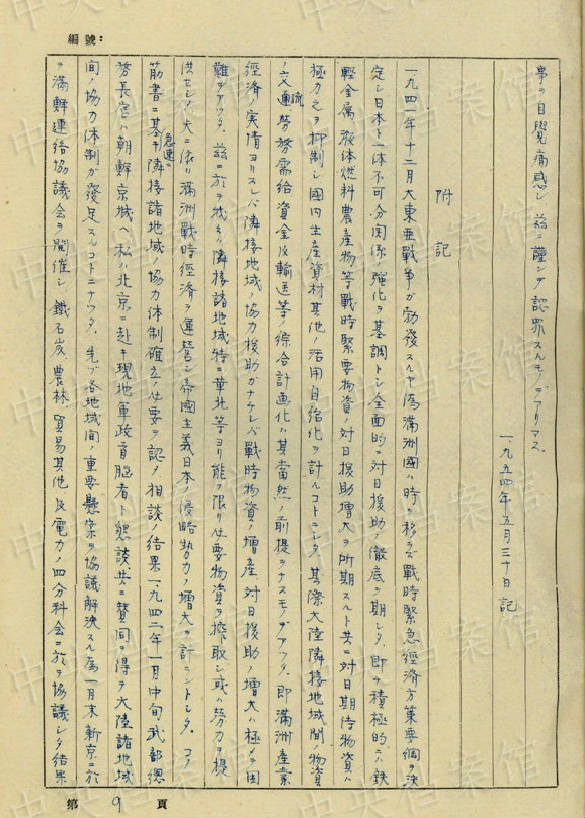 編號：
事ヲ自覺痛感シ茲ニ謹ンデ認罪スルモノデアリマス。
一九五四年五月三十日記
附記
一九四一年十二月大東亜戦争ガ勃發スルヤ偽満洲國ハ時ヲ移サズ戰時緊急經済方策要綱ヲ決
定シ日本ト一体不可分関係ノ強化ヲ基調トシ全面的ニ対日援助ノ徹底ヲ期シタ。即チ積極的ニハ鉄
軽金属、液体燃料農産物等戰時緊要物資ノ対日援助増大ヲ所期スルト共ニ対日期待物資ハ
極力之ヲ抑制シ國内生産資材其他ノ活用自給化ヲ計ルコトニシタ。其際大陸隣接地域間ノ物資
ノ交流労務需給資金及輸送等ノ綜合計画化ハ其当然ノ前提ヲナスモノデアツタ。即満洲産業
經済ノ実情ヨリスレバ隣接地域ノ協力援助ガナケレバ戰時物資ノ増産、対日援助ノ増大ハ極メテ困
難デアツタ。茲ニ於テ我々ハ隣接諸地域特ニ華北等ヨリ能フ限リ必要物資ヲ搾取シ或ハ労力ヲ提
供セシメ大ニ依リ滿洲戰時經済ヲ急速ニ運営シ帝國主義日本ノ侵略勢力ノ増大ヲ計ラントシタ。コノ
筋書ニ基キ隣接諸地域ノ協力体制確立ノ必要ヲ認メ相談ノ結果一九四二年一月中旬武部總
務長官ハ朝鮮京城ヘ私ハ北京ニ赴キ現地軍政首脳者ト懇談、共ニ賛同ヲ得テ大陸諸地域
間ノ協力体制ガ發足スルコトニナツタ。先ヅ各地域間ノ重要懸案ヲ協議解決スル為一月末新京ニ於
テ滿鮮連絡協議会ヲ開催シ、鐵石炭、農林、貿易其他及電力ノ四分科会ニ於テ協議シタ結果
第 9 頁
中央档案馆